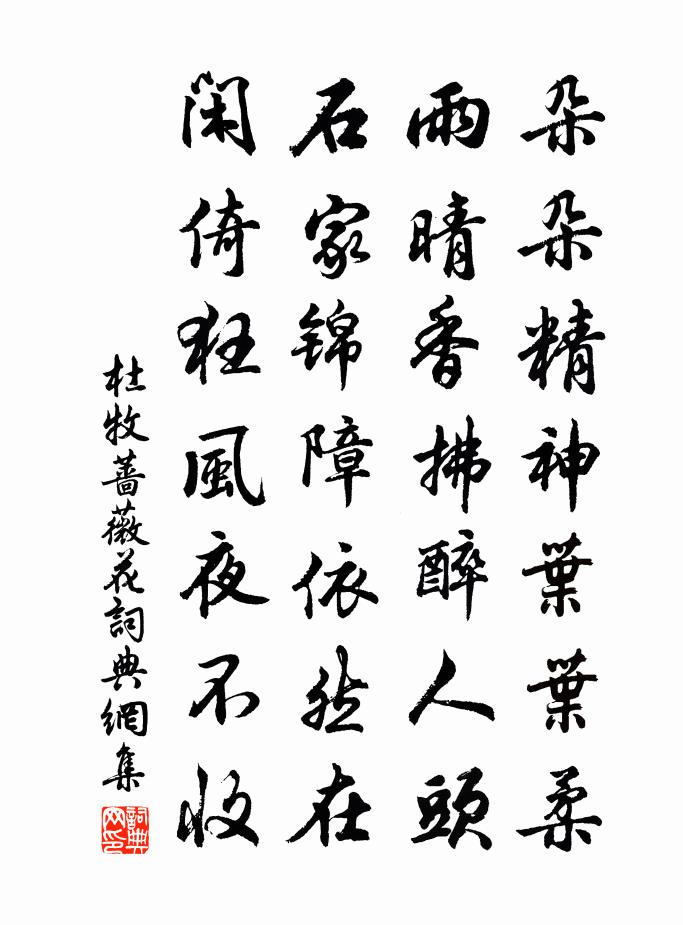 朵朵精神葉葉柔
雨晴香拂醉人頭
石家錦障依然在
閑倚狂風夜不收
杜牧薔薇花詞典網集
詞典网印